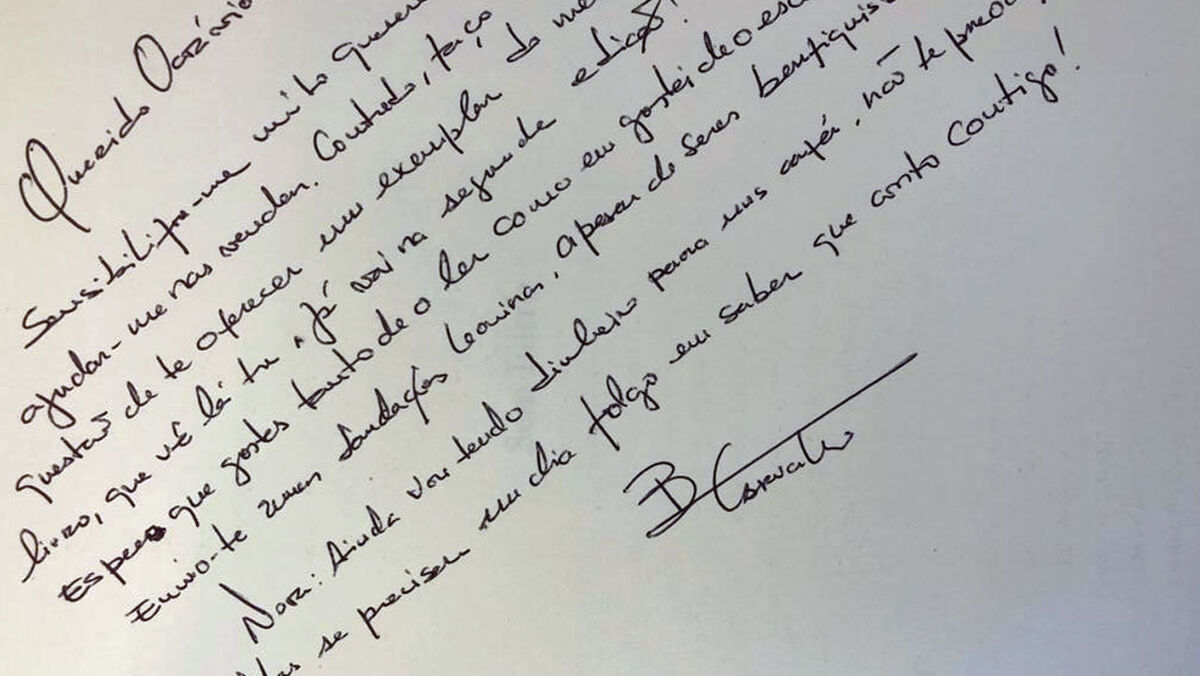 Querido
Sensibiliza-me muito
ajudar-me nas vendas. Contudo, faço
questão de te oferecer um exemplar do
livro, que vê lá tu, já vai na segunda edição!
Espero que gostes tanto de o ler como eu gostei de o
Envio-te umas saudações leoninas, apesar de seres benfiquista
Nota: Ainda vou tendo dinheiro para uns cafés, não te
Mas se precisar um dia folgo em saber que conto contigo!
B Carvalho